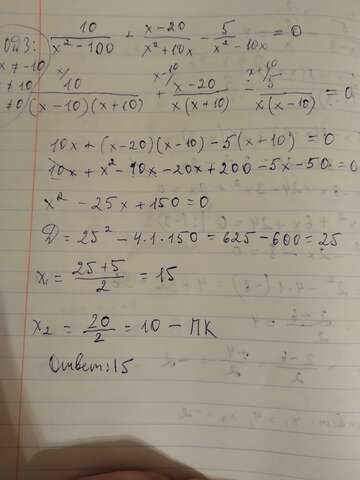 ОДЗ: 10/(x²-100) + (x-20)/(x²+10x) - 5/(x²-10x) = 0
x ≠ -10
≠ 10
≠ 0
x/ 10/((x-10)(x+10)) + x-10/ (x-20)/(x(x+10)) - x+10/ 5/(x(x-10)) = 0
10x + (x-20)(x-10) - 5(x+10) = 0
10x + x² - 10x - 20x + 200 - 5x - 50 = 0
x² - 25x + 150 = 0
D = 25² - 4·1·150 = 625 - 600 = 25
x₁ = (25+5)/2 = 15
x₂ = 20/2 = 10 - ПК
Ответ: 15